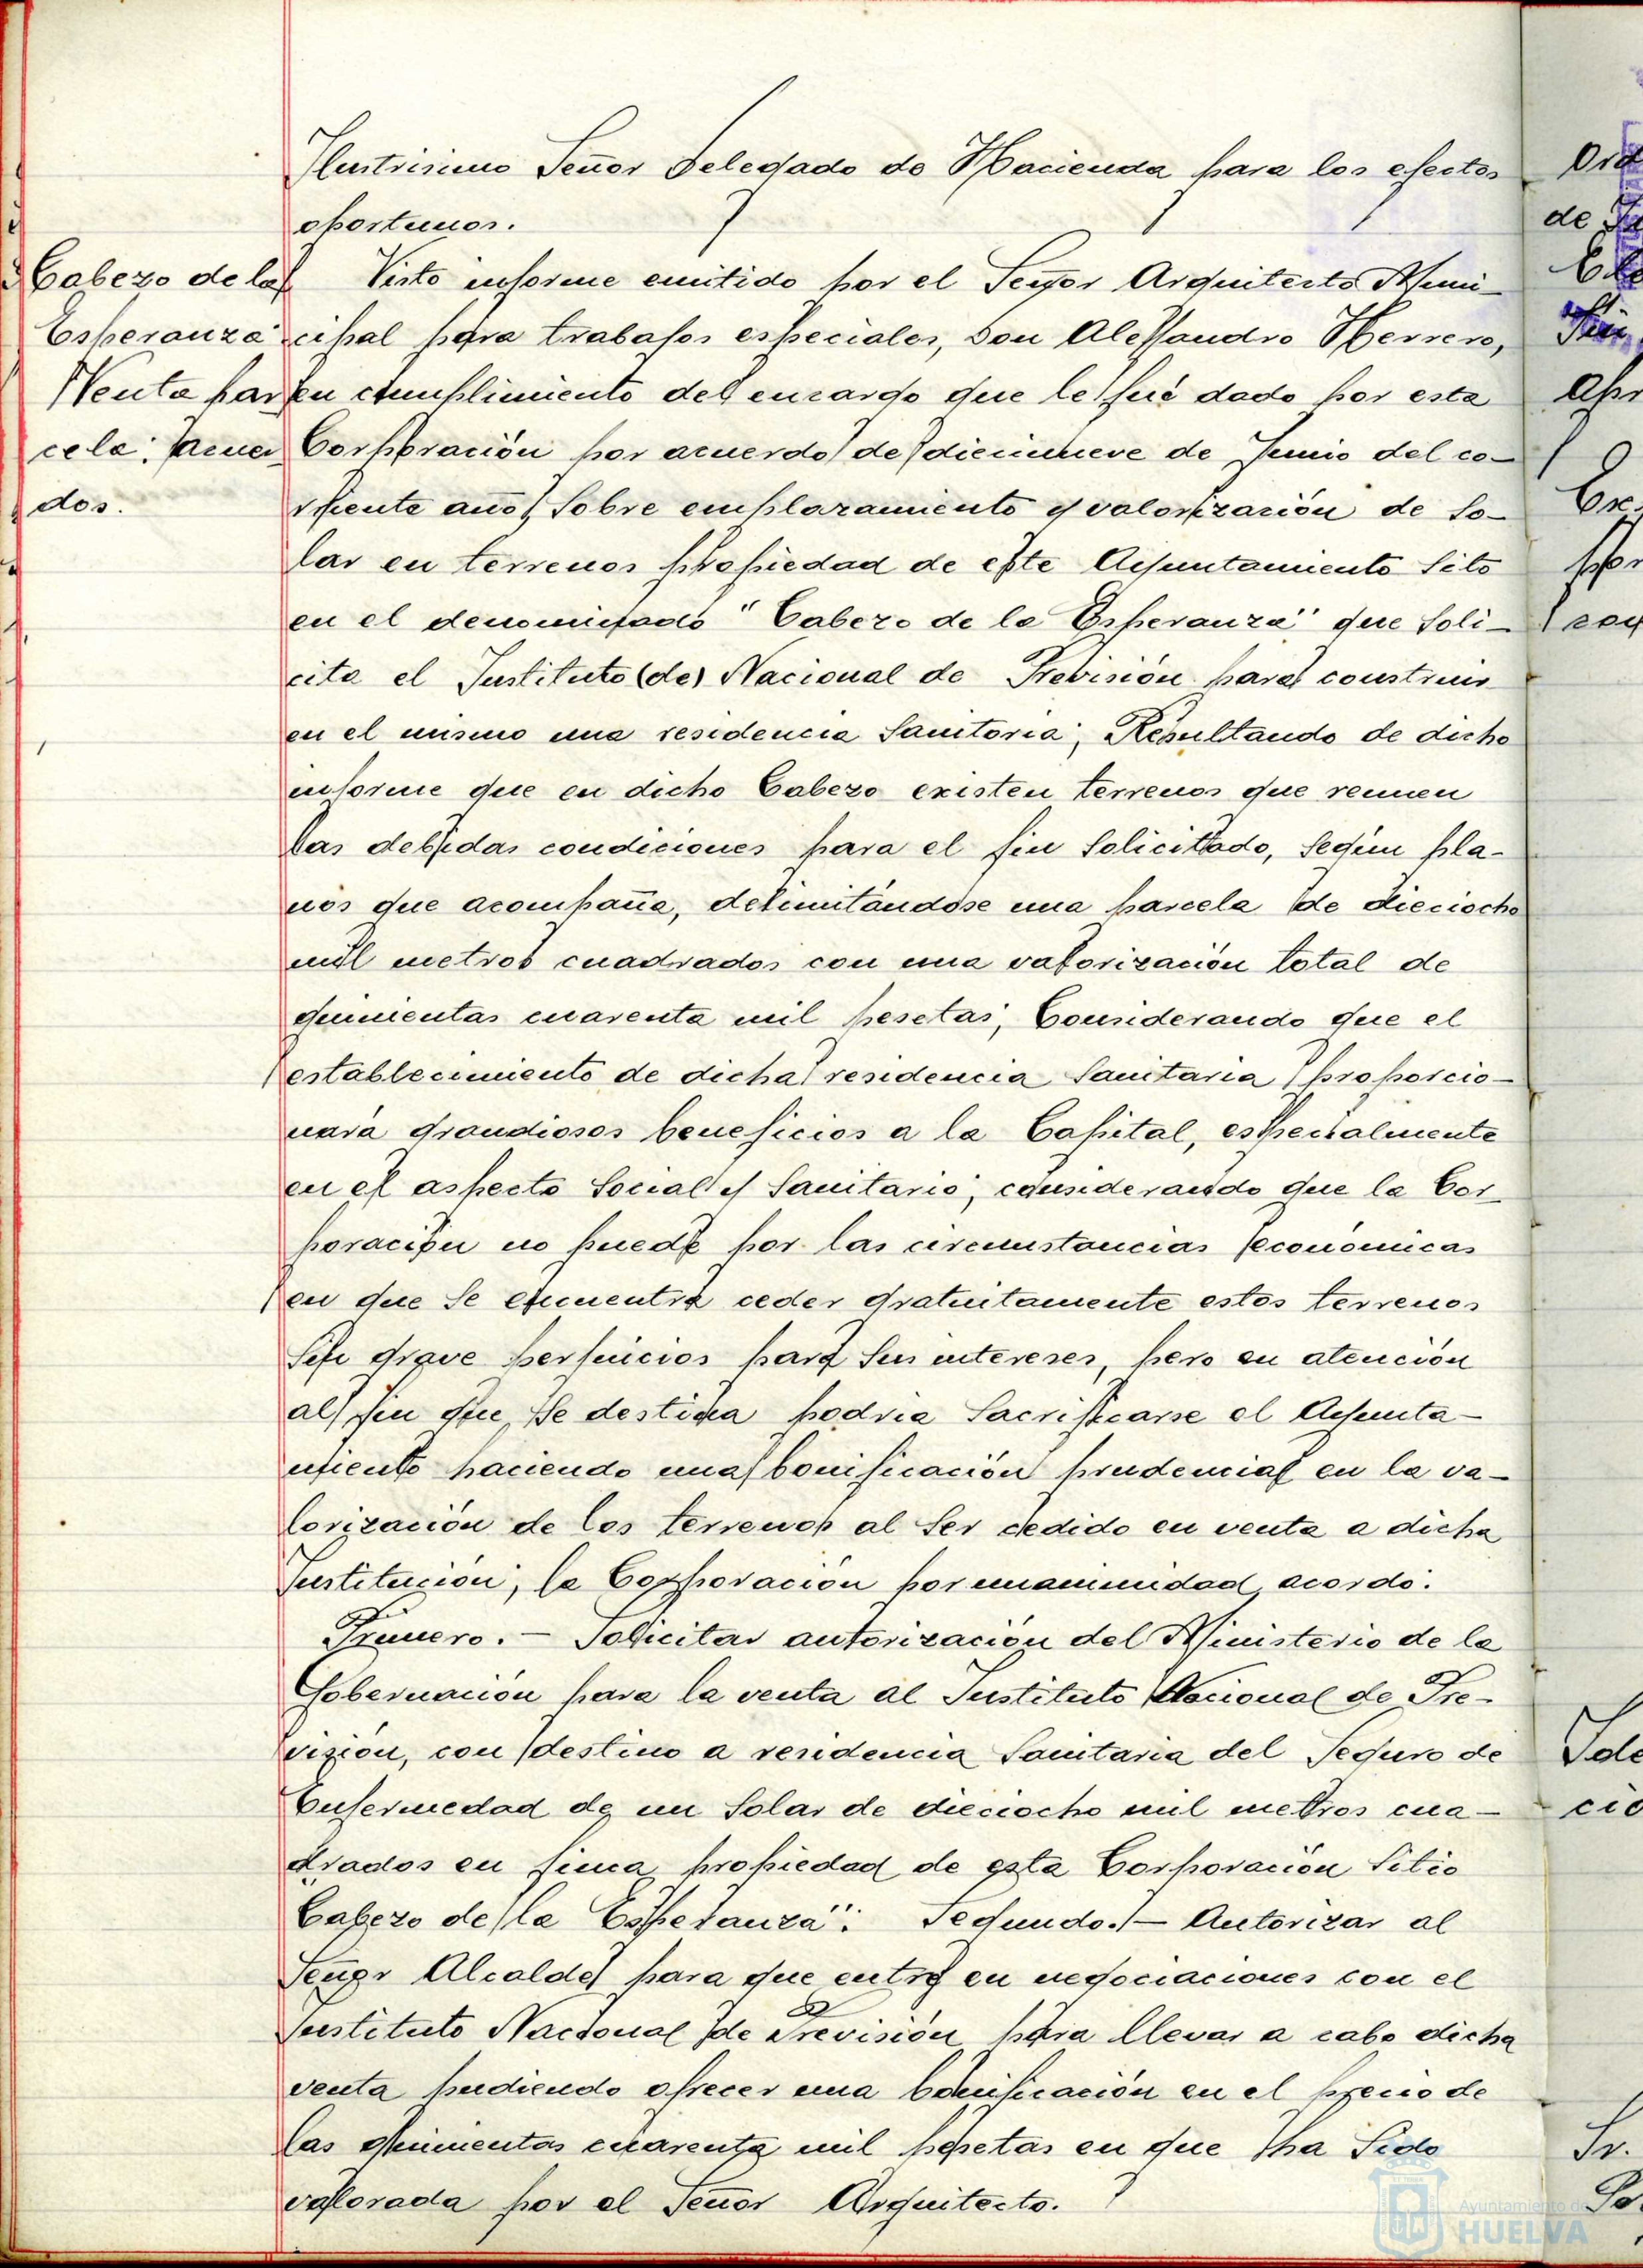 Ilustrisimo Señor Delegado de Hacienda para los efectos
oportunos.
Cabezo de la
Esperanza
Venta par
cela: Acuer
dos.
Visto informe emitido por el Señor Arquitecto Muni-
cipal para trabajos especiales, Don Alejandro Herrero,
en cumplimiento del encargo que le fué dado por esta
Corporación por acuerdo de diecinueve de Junio del co-
rriente año, sobre emplazamiento y valorización de So-
lar en terrenos propiedad de este Ayuntamiento Sito
en el denominado "Cabezo de la Esperanza" que Soli-
cita el Instituto (de) Nacional de Previsión para construir
en el mismo una residencia Sanitaria; Resultando de dicho
informe que en dicho Cabezo existen terrenos que reunen
las debidas condiciones para el fin Solicitado, Según pla-
nos que acompaña, delimitándose una parcela de dieciocho
mil metros cuadrados con una valorización total de
quinientas cuarenta mil pesetas; Considerando que el
establecimiento de dicha residencia Sanitaria proporcio-
nará grandiosos beneficios a la Capital, especialmente
en el aspecto Social y Sanitario; considerando que la Cor
poración no puede por las circunstancias económicas
en que Se encuentra ceder gratuitamente estos terrenos
Sin grave perjuicios para Sus intereses, pero en atención
al fin que Se destina podria Sacrificarse el Ayunta-
miento haciendo una bonificación prudencial en la va-
lorización de los terrenos al Ser cedido en venta a dicha
Institución; la Corporación por unanimidad acordo:
Primero. - Solicitar autorización del Ministerio de la
Gobernación para la venta al Instituto Nacional de Pre-
visión, con destino a residencia Sanitaria del Seguro de
Enfermedad de un Solar de dieciocho mil metros cua-
drados en finca propiedad de esta Corporación Sitio
Cabezo de la Esperanza": Segundo. - Autorizar al
Señor Alcalde para que entre en negociaciones con el
Instituto Nacional de Previsión para llevar a cabo dicha
venta pudiendo ofrecer una bonificación en el precio de
las quinientas cuarenta mil pesetas en que ha Sido
valorada por el Señor Arquitecto.
Ayuntamiento de
HUELVA